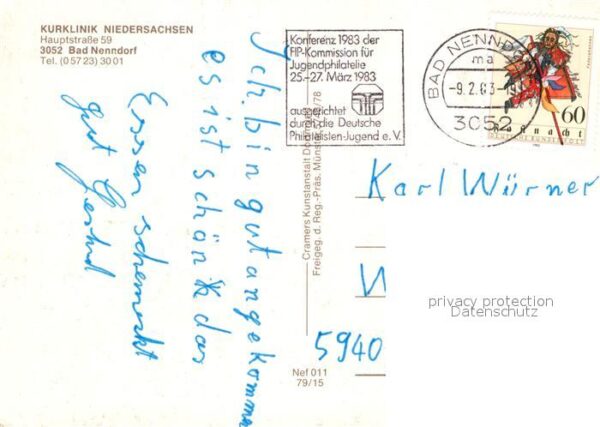 KURKLINIK NIEDERSACHSEN
Hauptstraße 59
3052 Bad Nenndorf
Tel. (0 57 23) 30 01
Konferenz 1983 der
FIP-Kommission für
Jugendphilatelie
25.-27. März 1983
ausgerichtet
durch die Deutsche
Philatelisten-Jugend e.V.
BAD NENNDORF
ma
-9.2.83-19
3052
60
Fastnacht
DEUTSCHE BUNDESPOST
Ich bin gut angekommen
es ist schön das
Essen schmeckt
gut
Cramers Kunstanstalt Dortmund
Freigeg. d. Reg.-Präs. Münster
Karl Würner
W
5940
Nef 011
79/15
privacy protection
Datenschutz